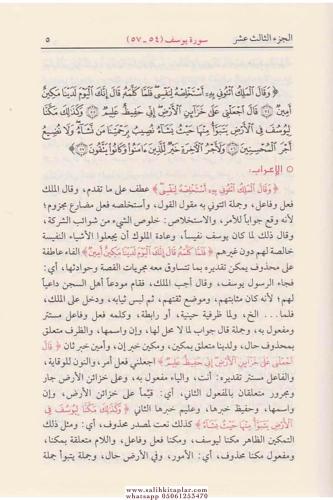 الجزء الثالث عشر سورة يوسف (٥٤ - ٥٧) ٥
﴿ وَقَالَ الْمَلِكُ ائْتُونِي بِهِ أَسْتَخْلِصْهُ لِنَفْسِي فَلَمَّا كَلَّمَهُ قَالَ إِنَّكَ الْيَوْمَ لَدَيْنَا مَكِينٌ
أَمِينٌ ﴿٥٤﴾ قَالَ اجْعَلْنِي عَلَى خَزَائِنِ الْأَرْضِ إِنِّي حَفِيظٌ عَلِيمٌ ﴿٥٥﴾ وَكَذَلِكَ مَكَّنَّا
لِيُوسُفَ فِي الْأَرْضِ يَتَبَوَّأُ مِنْهَا حَيْثُ يَشَاءُ نُصِيبُ بِرَحْمَتِنَا مَنْ نَشَاءُ وَلَا نُضِيعُ
أَجْرَ الْمُحْسِنِينَ ﴿٥٦﴾ وَلَأَجْرُ الْآخِرَةِ خَيْرٌ لِلَّذِينَ آمَنُوا وَكَانُوا يَتَّقُونَ ﴿٥٧﴾ ﴾
○ الإعراب:
﴿ وَقَالَ الْمَلِكُ ائْتُونِي بِهِ أَسْتَخْلِصْهُ لِنَفْسِي ﴾ عطف على ما تقدم، وقال الملك
فعل وفاعل، وجملة ائتوني به مقول القول، وأستخلصه فعل مضارع مجزوم؛
لأنه وقع جواباً للأمر، والاستخلاص: خلوص الشيء من شوائب الشركة،
وقال ذلك لما كان يوسف نفيساً، وعادة الملوك أن يجعلوا الأشياء النفيسة
خالصة لهم دون غيرهم ﴿ فَلَمَّا كَلَّمَهُ قَالَ إِنَّكَ الْيَوْمَ لَدَيْنَا مَكِينٌ أَمِينٌ ﴾ الفاء عاطفة
على محذوف يمكن تقديره بما تتساوق معه مجريات القصة وحوادثها، أي:
فجاء الرسول يوسف، وقال أجب الملك، فقام مودعاً أهل السجن داعياً
لهم؛ لأنه كان مثابتهم، وموضع ثقتهم، ثم لبس ثيابه، ودخل على الملك،
فلما... الخ، ولما ظرفية حينية، أو رابطة، وكلمه فعل وفاعل مستتر
ومفعول به، وجملة قال جواب لما لا محل لها، وإن واسمها، والظرف متعلق
بمحذوف حال، ولدينا متعلق بمكين، ومكين خبر إن، وأمين خبر ثان ﴿ قَالَ
اجْعَلْنِي عَلَى خَزَائِنِ الْأَرْضِ إِنِّي حَفِيظٌ عَلِيمٌ ﴾ اجعلني فعل أمر، والنون للوقاية،
والفاعل مستتر تقديره: أنت، والياء مفعول به، وعلى خزائن الأرض جار
ومجرور متعلقان بالمفعول الثاني، أي: قيّماً على خزائن الأرض، وإن
واسمها، وحفيظ خبرها، وعليم خبرها الثاني ﴿ وَكَذَلِكَ مَكَّنَّا لِيُوسُفَ فِي
الْأَرْضِ يَتَبَوَّأُ مِنْهَا حَيْثُ يَشَاءُ ﴾ كذلك نعت لمصدر محذوف، أي: ومثل ذلك
التمكين الظاهر مكنا ليوسف، ومكنا فعل وفاعل، واللام متعلقة بمكنا،
ومفعول مكنا محذوف، أي: الأمور، وفي الأرض حال، وجملة يتبوأ جملة
www.salihkitaplar.com
whatsapp 05061253470